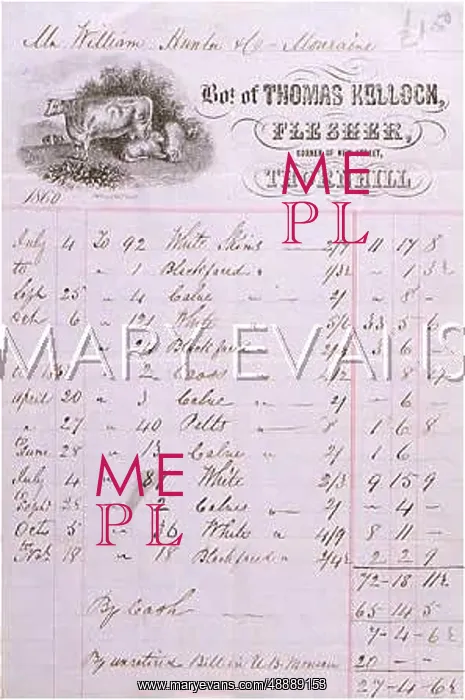 Mr William Hunter & Co
1 50
Bot. of THOMAS KELLOCK,
FLESHER,
CORNER OF NEW STREET,
THORNHILL
1860
ME
PL
July 4 To 92 White Skins 11 17 8
to " 1 Blackfaced " 1/3½ - 1 3½
Sept 25 " 4 Calve " 2/ " 8 -
Oct 6 " White 5/6 33 5 6
MARY EVANS
" Blackfaced 3 6 -
2
April 20 " 3 Calve " 2/ - 6 -
" 27 " 40 Pelts " 8 1 6 8
June 28 " 13 Calve " 2/ 1 6
ME
PL
July 4 " White 2/3 9 15 9
to
Sept 25 " 2 Calve " 2/ - 4 -
Octr 5 " 36 White " 4/9 8 11 -
to
Nov 18 " 18 Blackfaced " 2/4½ 2 2 9
72-18 11½
By Cash 65 14 5
7-4-6½
By unretired Bill in U.B. 20 - -
27-4-6½
www.maryevans.com/48889153